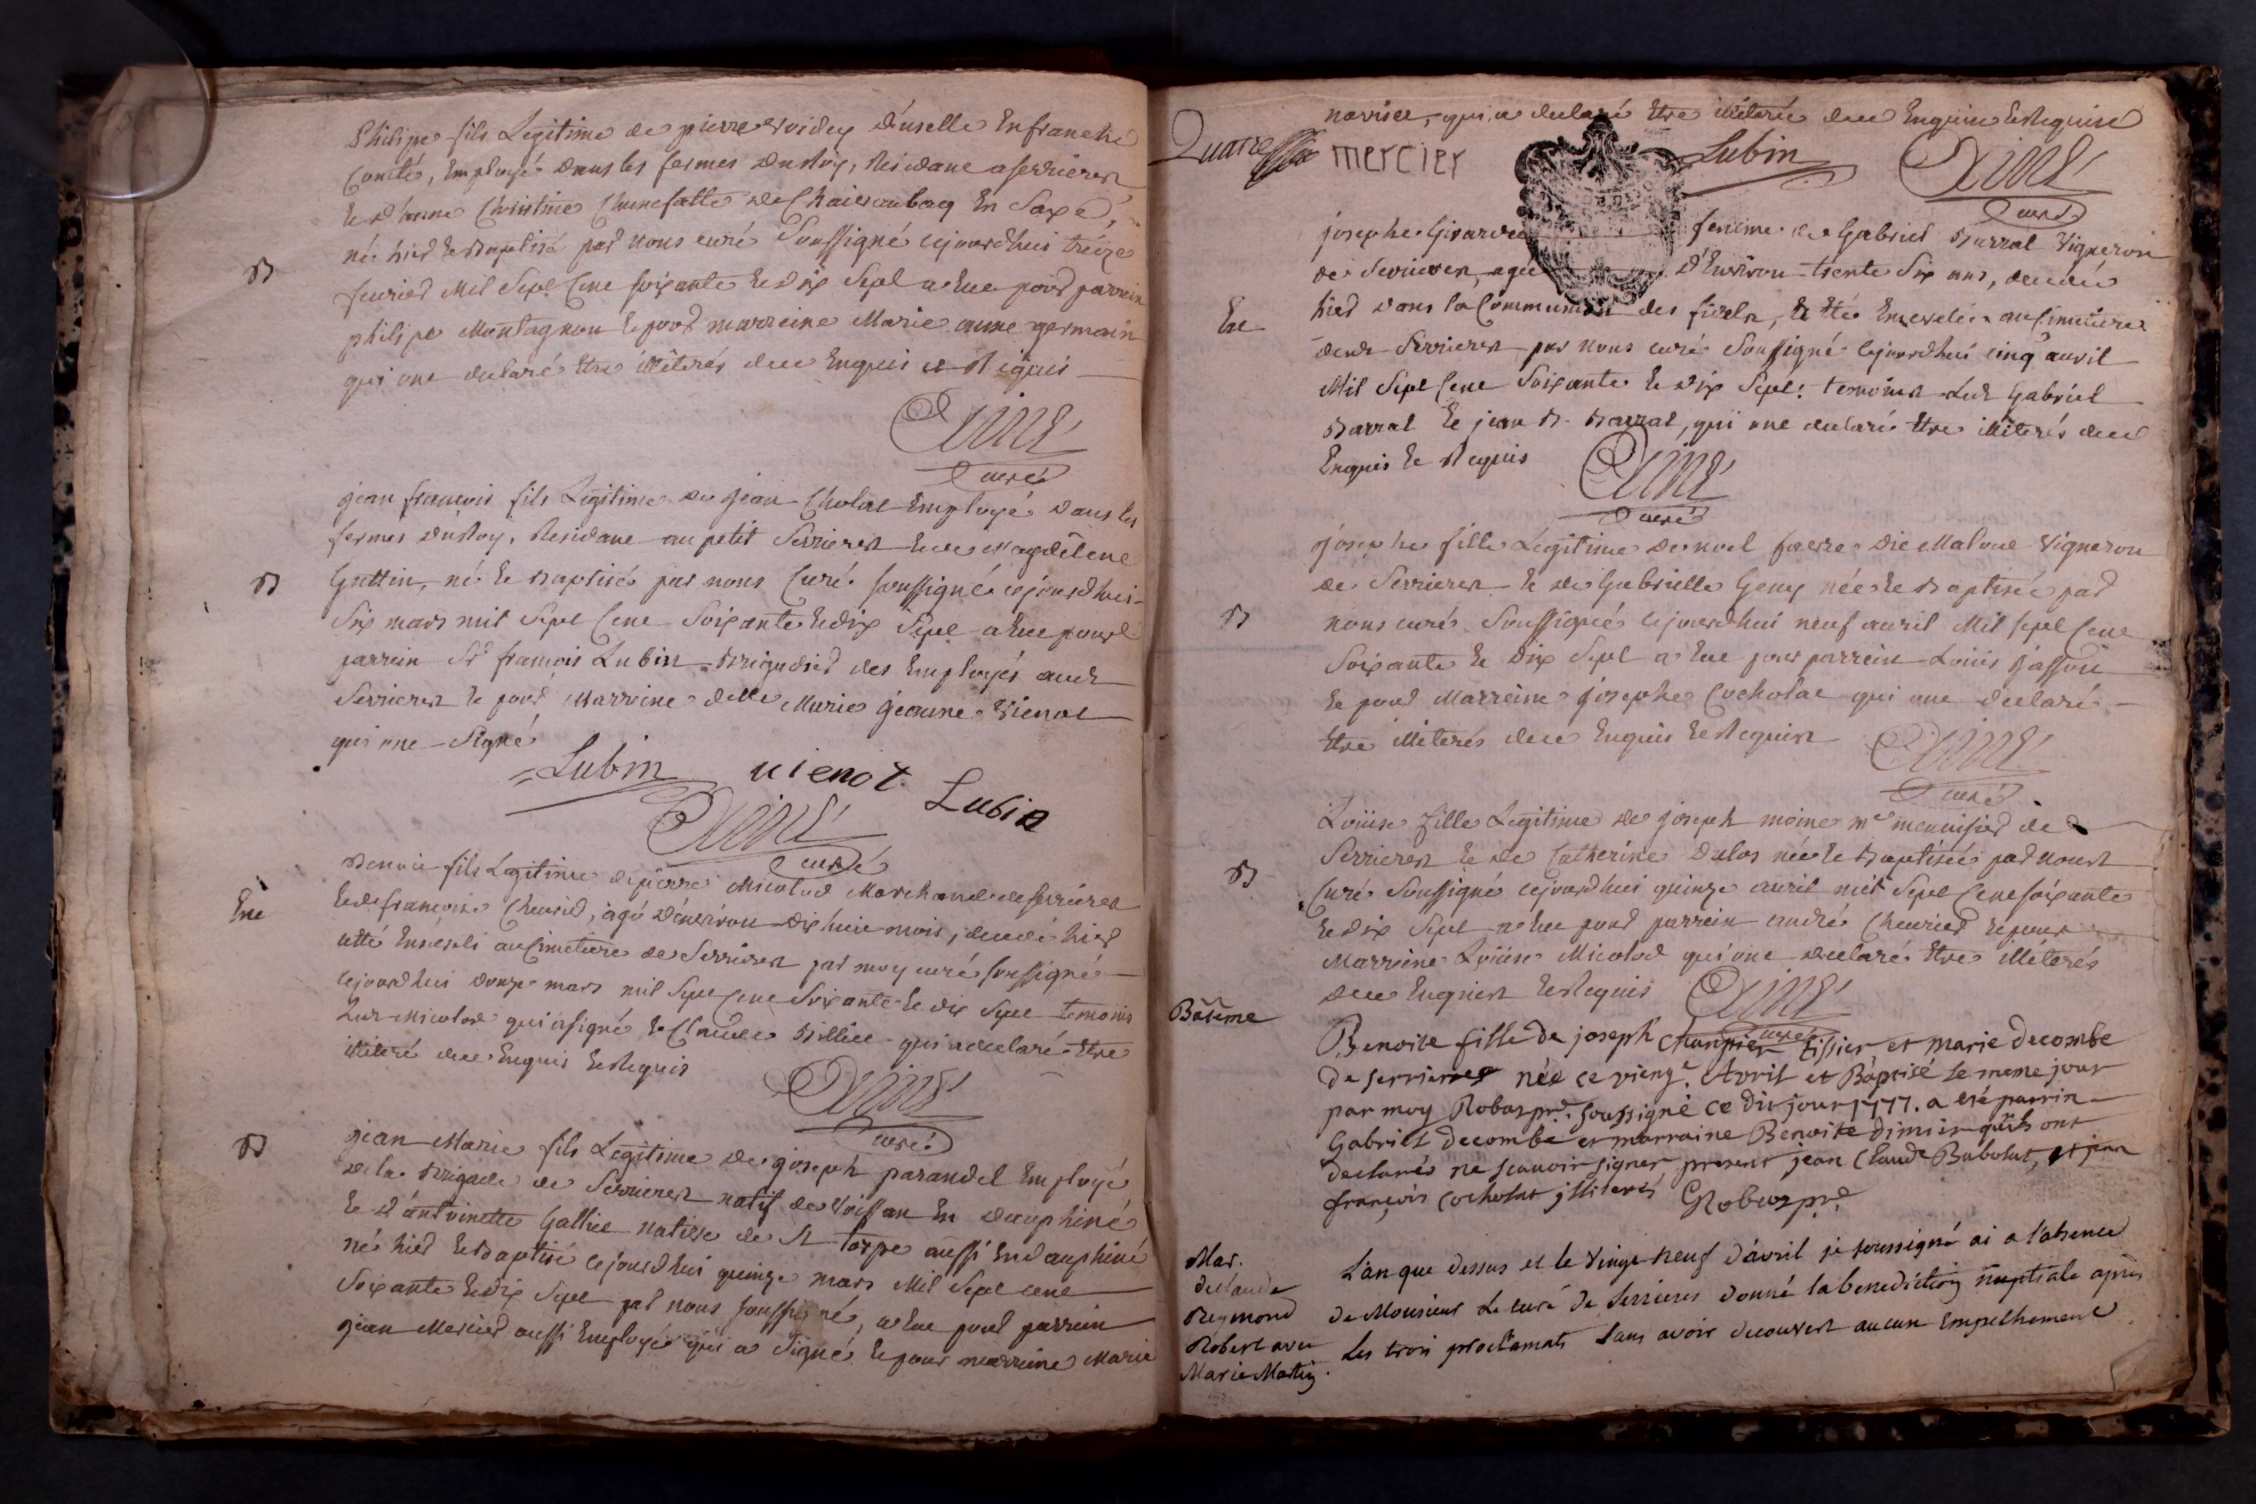 B
Philipe fils Legitime de pierre voidey d'uselle En franche
Comté, Employé dans les fermes du Roy, Residant a serrieres
Et d'anne Christine de En Saxe,
né hier Et Baptisé par nous curé Soussigné cejourdhui treize
feurier Mil Sept Cent soixante Et dix Sept a Eue pour parrein
philipe Montagnon Et pour marreine Marie anne germain
qui ont declaré Etre illiterés dece Enquis et Requis
curé
B
jean francois fils Legitime de jean Cholat Employé dans les
fermes du Roy, Residant au petit Serrieres Et de Magdelene
Guttin, né Et Baptisé par nous Curé soussigné cejourdhui
Six mars mil Sept Cent Soixante Et dix Sept a Eue pour
parrein Sr francois Lubin Brigadier des Employés aud
Serrieres Et pour Marreine delle Marie jeanne Vienot
qui ont Signé
Lubin vienot Lubin
curé
Ent
Benoit fils Legitime de pierre Micolod Marchand de serrieres
Et de francoise Cheurier, agé d'environ dix huit mois, decedé hier
Enseveli au Cimetiere de Serrieres par moy curé soussigné
cejourdhui douze mars mil Sept Cent Soixante Et dix Sept temoins
Micolod qui a signé Et Claude Billiet qui a declaré Etre
illiteré dece Enquis Et Requis
curé
B
jean Marie fils Legitime de joseph parandel Employé
de la Brigade de Serrieres natif de Voissan En dauphiné
Et d'antoinette Galliet natisve de St torpe aussi En dauphiné
né hier Et Baptisé cejourdhui quinze mars Mil Sept cent
Soixante Et dix Sept par nous soussigné, a Eue pour parrein
jean Mercier aussi Employé qui a Signé Et pour marreine Marie
navisee, qui a declaré Etre illiterée dece Enquise Et Requise
Quatre mercier Lubin
curé
Ent
josephe Girardet femme de Gabriel Barral Vigneron
de Serrieres, agée d'Environ trente Six ans, decedée
hier dans la Communion des fideles, Et Eté Ensevelie au Cimetiere
dud Serrieres par nous curé Soussigné cejourdhui cinq auril
Mil Sept Cent Soixante Et dix Sept. temoins Led Gabriel
Barral Et jean B. Barral, qui ont declaré Etre illiterés dece
Enquis Et Requis
curé
B
josephe fille Legitime de noel faivre dit Vigneron
de Serrieres Et de Gabrielle Geny née Et Baptisée par
nous curés Soussignés cejourdhui neuf auril Mil sept Cent
Soixante Et dix Sept a Eue pour parrein Loüis
Et pour Marreine josephe Cocholat qui ont declaré
Etre illiterés dece Enquis Et Requis
curé
B
Loüise fille Legitime de joseph moine me menuisier de
Serrieres Et de Catherine Dulos née Et Baptisée par nous
Curé Soussigné cejourdhui quinze auril mil Sept Cent soixante
Et dix Sept a Eue pour parrein andré Cheurier Et pour
Marreine Loüise Micolod qui ont declaré Etre illiterés
dece Enquis Et Requis
curé
Batéme
Benoite fille de joseph tissier et marie decombe
de serrieres née ce vingt. Avril et Baptisé le meme jour
par moy Robaz prê. soussigné ce dit jour 1777. a été parrin
Gabriel decombe et marraine Benoite dimier qu'ils ont
declarés ne scauoir signer present jean Claude Bubolut, et jean
françois cocholat jlliterés GRobaz prê
Mar.
de Claude
Reymond
Robert avec
Marie Martin.
L'an que dessus et le vingt-neuf d'avril je soussigné ai a l'absence
de Monsieur Le curé de Serrieres donné la benediction nuptiale apres
Les trois proclamats Sans avoir decouvert aucun Empechement